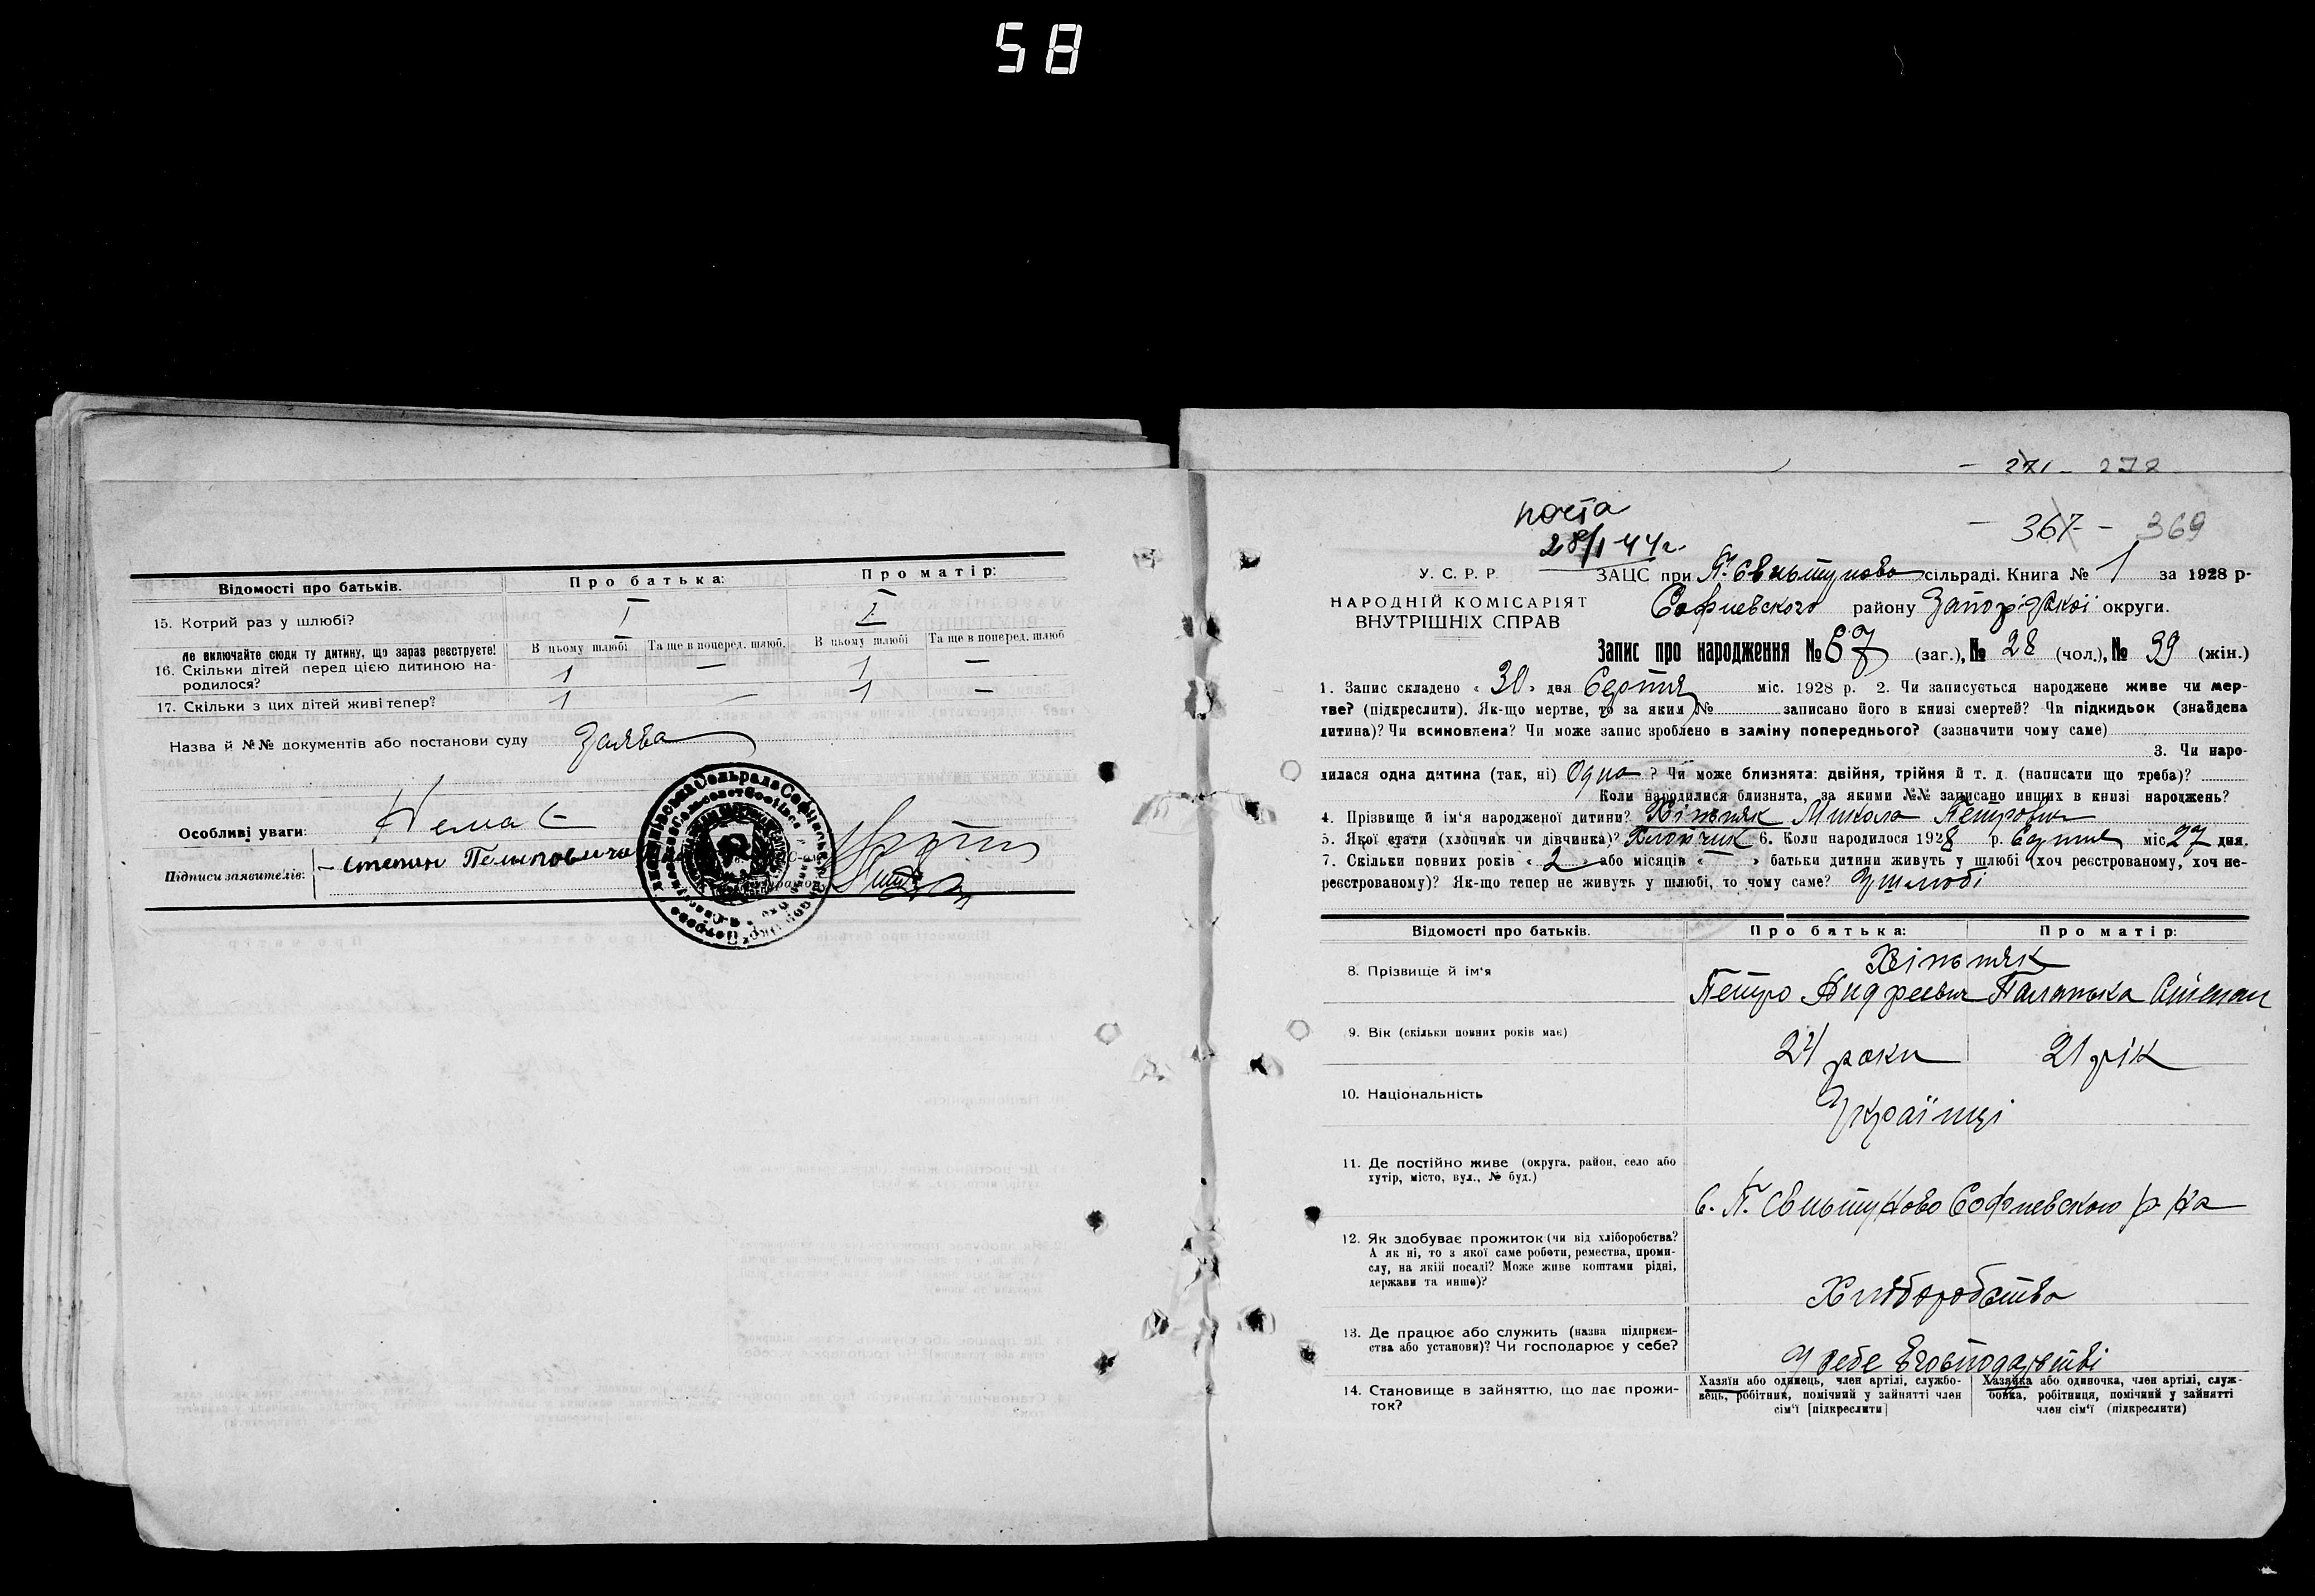 58
Відомості про батьків.
Про батька:
Про матір:
15. Котрий раз у шлюбі?
I
I
Не включайте сюди ту дитину, що зараз реєструєте!
В цьому шлюбі
Та ще в поперед. шлюб.
В цьому шлюбі
Та ще в поперед. шлюб
16. Скільки дітей перед цією дитиною на-
родилося?
1 — 1 —
17. Скільки з цих дітей живі тепер?
1 — 1 —
Назва й №№ документів або постанови суду Заява
Особливі уваги: Нема є
Підписи заявителів:
271 - 272
- 367 - 369
пошта
28/I-44г.
У. С. Р. Р.
НАРОДНІЙ КОМІСАРІЯТ
ВНУТРІШНІХ СПРАВ
ЗАЦС при сільраді. Книга № 1 за 1928 р-
Софиевского району Запорізької округи.
Запис про народження № 67 (заг.), № 28 (чол.), № 39 (жін.)
1. Запис складено « 30 » дня Серпня міс. 1928 р. 2. Чи записується народжене живе чи мер-
тве? (підкреслити). Як-що мертве, то за яким № записано його в книзі смертей? Чи підкидьок (знайдена
дитина)? Чи всиновлена? Чи може запис зроблено в заміну попереднього? (зазначити чому саме)
3. Чи наро-
дилася одна дитина (так, ні) Одна ? Чи може близнята: двійня, трійня й т. д. (написати що треба)?
Коли народилися близнята, за якими №№ записано инших в книзі народжень?
4. Прізвище й ім'я народженої дитини? Микола Петрович
5. Якої стати (хлопчик чи дівчинка)? Хлопчик 6. Коли народилося 1928 р. Серпня міс 27 дня.
7. Скільки повних років « 2 » або місяців « — » батьки дитини живуть у шлюбі (хоч реєстрованому, хоч не-
реєстрованому)? Як-що тепер не живуть у шлюбі, то чому саме? У шлюбі
Відомості про батьків.
Про батька:
Про матір:
8. Прізвище й ім'я
Петро Андреевич
9. Вік (скільки повних років має)
24 роки
21 рік
10. Національність
Українці
11. Де постійно живе (округа, район, село або
хутір, місто, вул., № буд.)
Софиевского р-на
12. Як здобуває прожиток (чи від хліборобства?
А як ні, то з якої саме роботи, ремества, проми-
слу, на якій посаді? Може живе коштами рідні,
держави та инше)?
Хліборобство
13. Де працює або служить (назва підприєм-
ства або установи)? Чи господарює у себе?
У себе в господарстві
14. Становище в зайняттю, що дає прожи-
ток?
Хазяїн або одинець, член артілі, службо-
вець, робітник, помічний у зайнятті член
сім'ї [підкреслити]
Хазяйка або одиночка, член артілі, служ-
бовка, робітниця, помічний у зайнятті
член сім'ї (підкреслити)